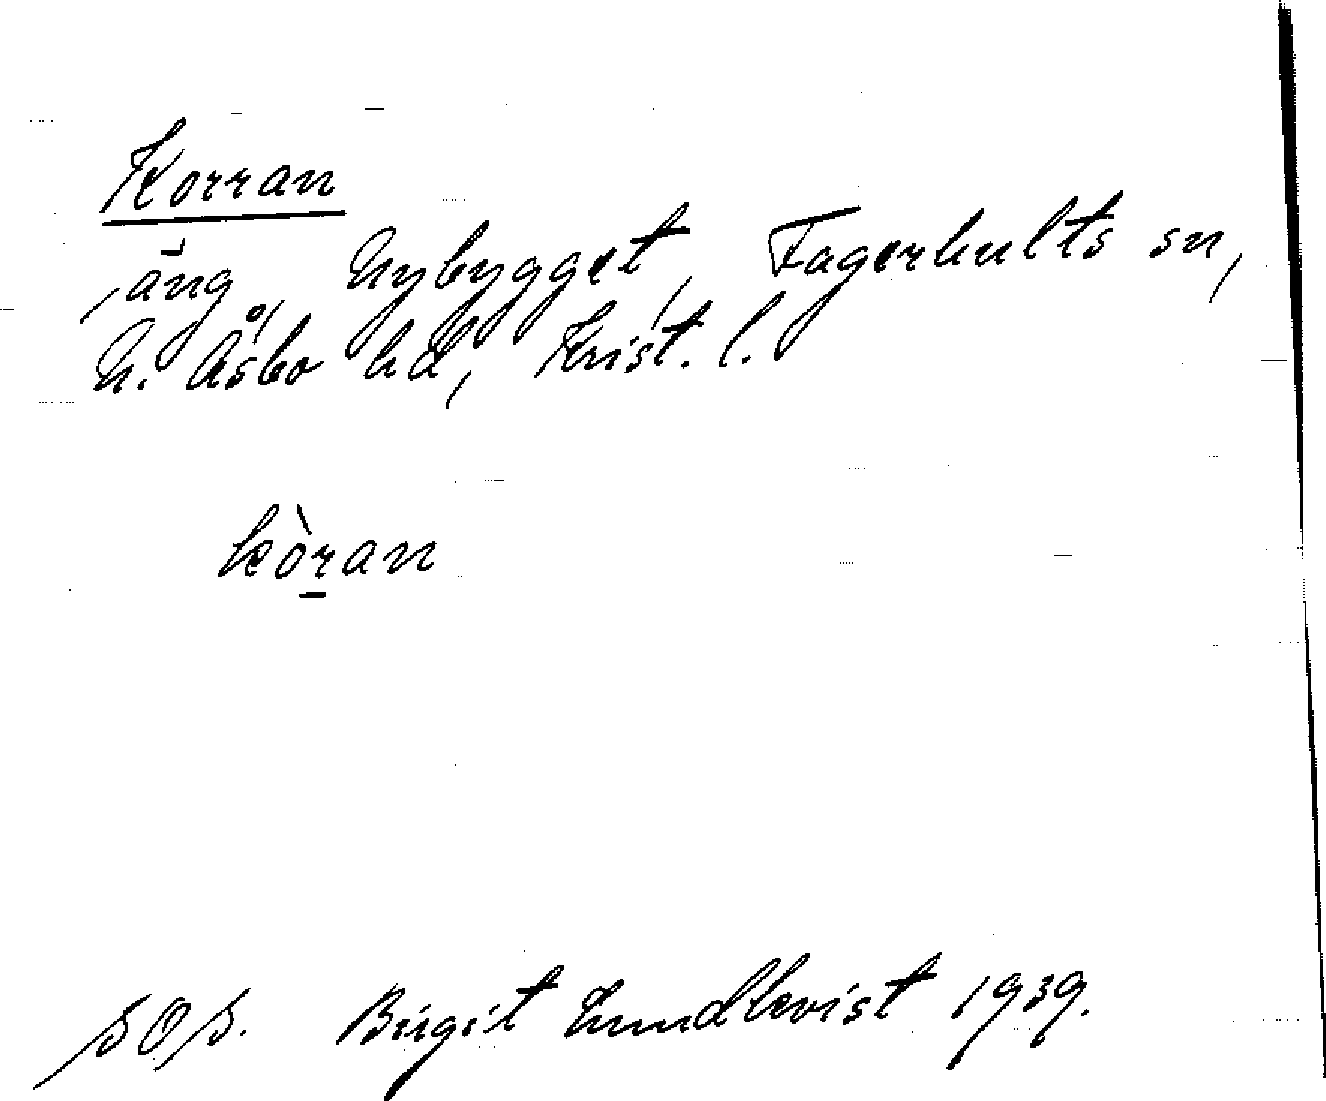 Korran
äng, Nybygget, Fagerhults sn,
N. Åsbo hd, Krist. l.
kòr̲an
SOS. Birgit Lundkvist 1939.